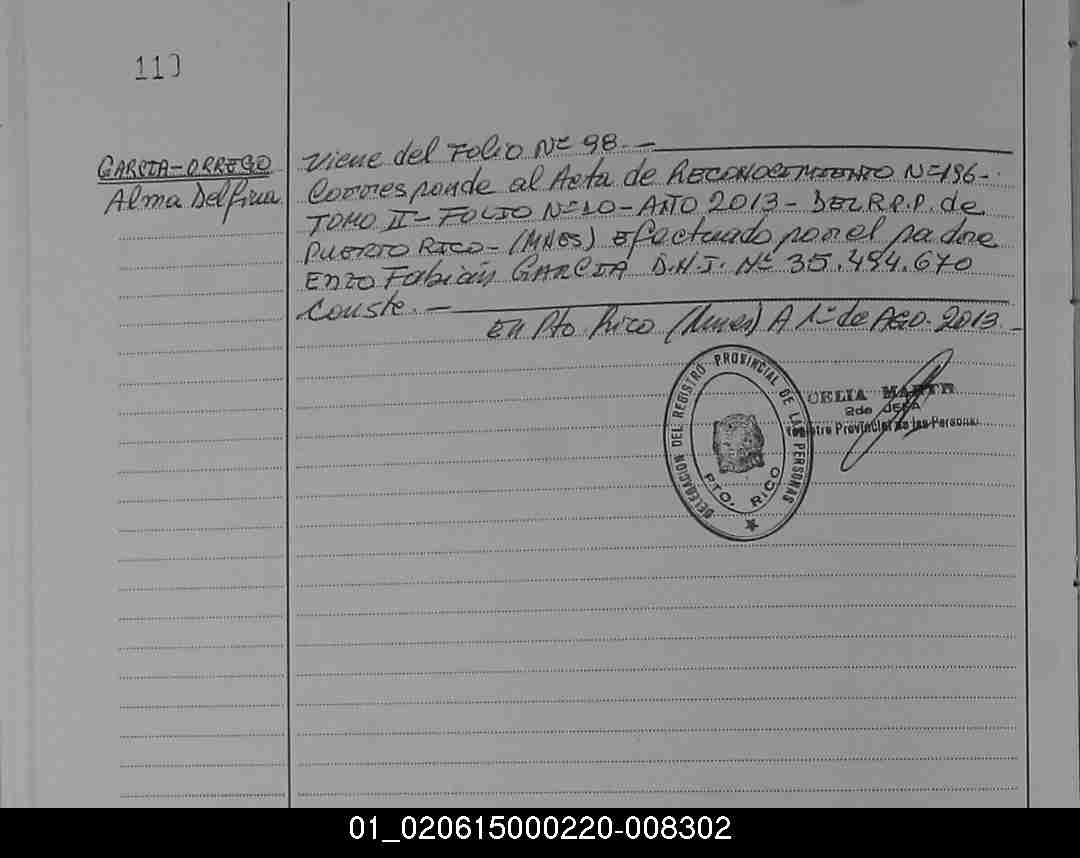 11)
GARCIA-ORREGO
Alma Delfina
Viene del Folio Nº 98.—
Corresponde al Acta de RECONOCIMIENTO Nº196-
TOMO II - FOLIO Nº10 - AÑO 2013 - DEL R.P.P. de
PUERTO RICO - (MNES) Efectuado por el padre
ENZO Fabián GARCIA D.N.I. Nº 35.494.670
Conste.—
En Pto Rico (Mnes) A 1º de AGO. 2013.-
DELEGACION DEL REGISTRO PROVINCIAL DE LAS PERSONAS
PTO. RICO
CELIA
2da JEFA
Registro Provincial de las Personas
01_020615000220-008302